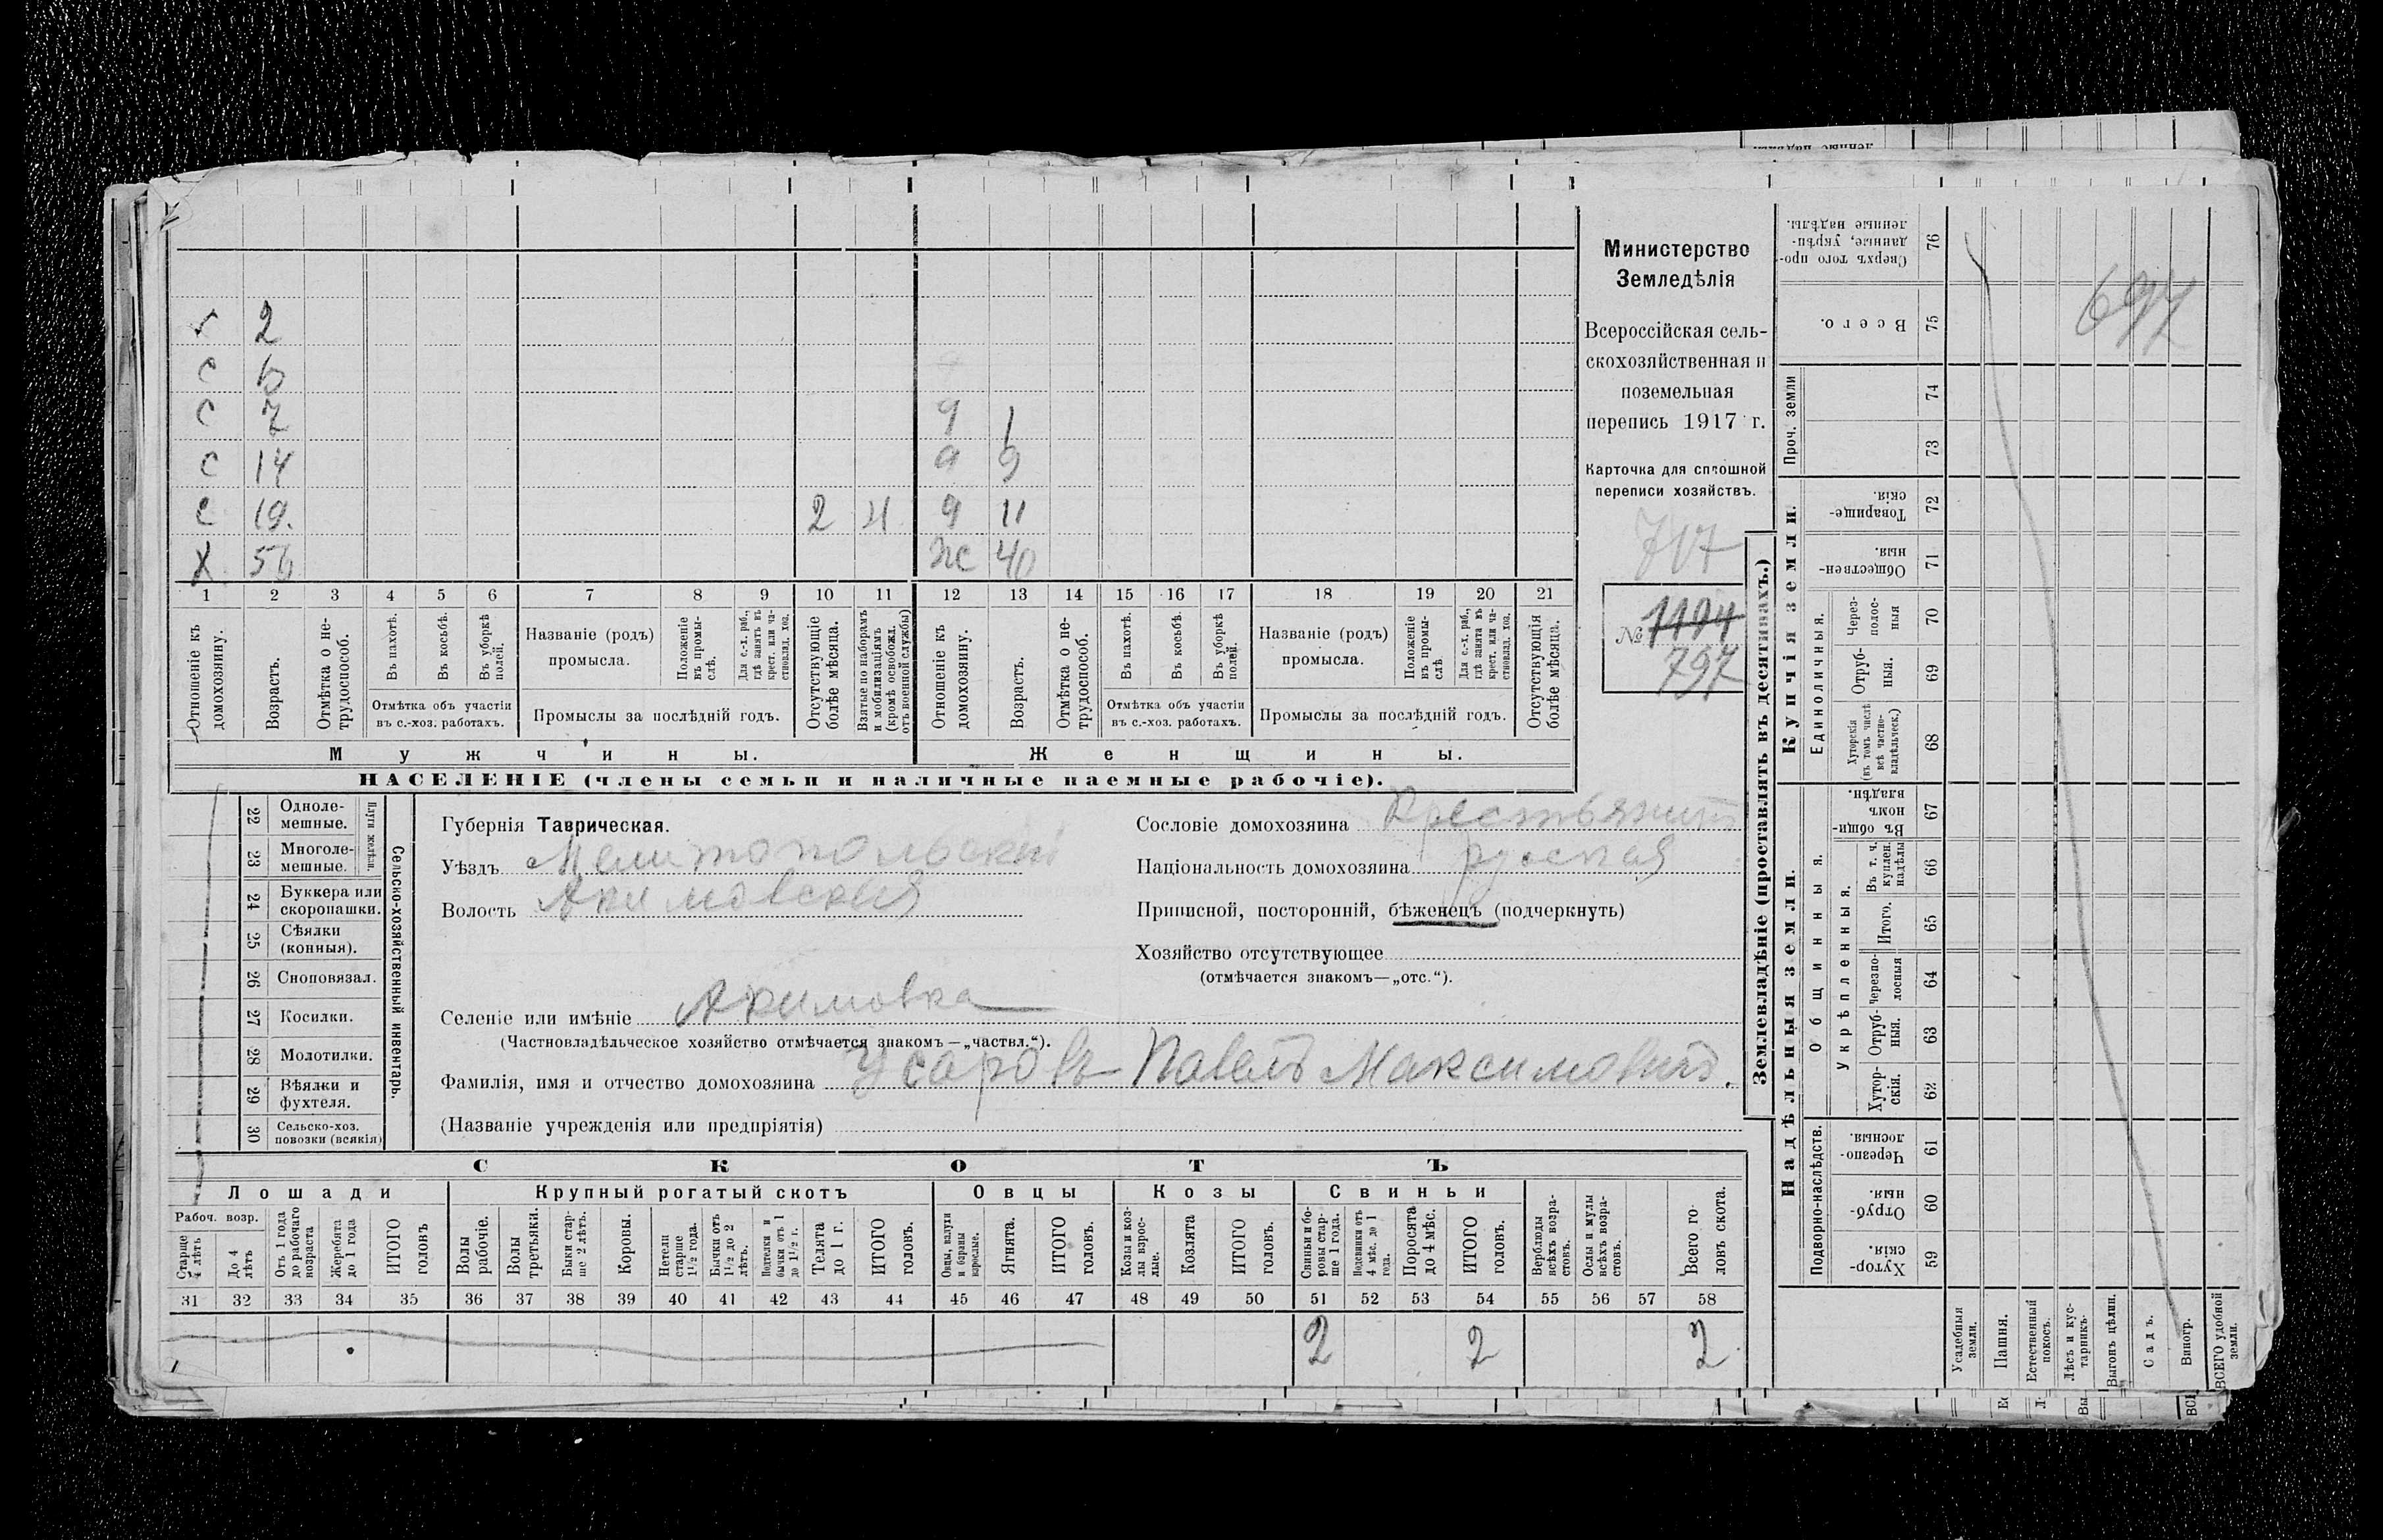 Министерство
Земледѣлія
Всероссійская сель-
скохозяйственная и
поземельная
перепись 1917 г.
Карточка для сплошной
переписи хозяйствъ.
717
№ 1194
797
697
с 2
с
с 7
с 14
с 19.
Х 50
2
д 1
д 9
д 11
ж 40
1 2 3 4 5 6 7 8 9 10 11 12 13 14 15 16 17 18 19 20 21
Отношеніе къ домохозяину.
Возрастъ.
Отмѣтка о не-трудоспособ.
Въ пахотѣ.
Въ косьбѣ.
Въ уборкѣ полей.
Отмѣтка объ участіи въ с.-хоз. работахъ.
Названіе (родъ) промысла.
Положеніе въ промы-слѣ.
Для с.-х. раб., гдѣ занятъ въ крест. или ча-стновлад. хоз.
Промыслы за послѣдній годъ.
Отсутствующіе болѣе мѣсяца.
Взятые по наборамъ и мобилизаціямъ (кромѣ освобожд. отъ военной службы)
Отношеніе къ домохозяину.
Возрастъ.
Отмѣтка о не-трудоспособ.
Въ пахотѣ.
Въ косьбѣ.
Въ уборкѣ полей.
Отмѣтка объ участіи въ с.-хоз. работахъ.
Названіе (родъ) промысла.
Положеніе въ промы-слѣ.
Для с.-х. раб., гдѣ занята въ крест. или ча-стновлад. хоз.
Промыслы за послѣдній годъ.
Отсутствующія болѣе мѣсяца.
Мужчины.
Женщины.
НАСЕЛЕНІЕ (члены семьи и наличные наемные рабочіе).
Сельско-хозяйственный инвентарь.
Плуги желѣзн.
22 Одноле-мешные.
23 Многоле-мешные.
24 Буккера или скоропашки.
25 Сѣялки (конныя).
26 Сноповязал.
27 Косилки.
28 Молотилки.
29 Вѣялки и фухтеля.
30 Сельско-хоз. повозки (всякія)
Губернія Таврическая.
Уѣздъ Мелитопольскій
Волость Акимовская
Селеніе или имѣніе Акимовка
(Частновладѣльческое хозяйство отмѣчается знакомъ—„частвл.“).
Фамилія, имя и отчество домохозяина Усаровъ Павелъ Максимовичъ.
(Названіе учрежденія или предпріятія)
Сословіе домохозяина Крестьянинъ
Національность домохозяина руская
Приписной, посторонній, бѣженецъ (подчеркнуть)
Хозяйство отсутствующее
(отмѣчается знакомъ—„отс.“).
СКОТЪ
Лошади
Крупный рогатый скотъ
Овцы
Козы
Свиньи
Рабоч. возр.
Старше 4 лѣтъ
До 4 лѣтъ
Отъ 1 года до рабочаго возраста
Жеребята до 1 года
ИТОГО головъ
Волы рабочіе.
Волы третьяки.
Быки стар-ше 2 лѣтъ.
Коровы.
Нетели старше 1½ года.
Бычки отъ 1½ до 2 лѣтъ.
Подтелки и бычки отъ 1 до 1½ г.
Телята до 1 г.
ИТОГО головъ.
Овцы, валухи и бараны взрослые.
Ягнята.
ИТОГО головъ.
Козы и коз-лы взрос-лые.
Козлята
ИТОГО головъ.
Свиньи и бо-ровы стар-ше 1 года.
Подсвинки отъ 4 мѣс. до 1 года.
Поросята до 4 мѣс.
ИТОГО головъ.
Верблюды всѣхъ возра-стовъ.
Ослы и мулы всѣхъ возра-стовъ.
Всего го-ловъ скота.
31 32 33 34 35 36 37 38 39 40 41 42 43 44 45 46 47 48 49 50 51 52 53 54 55 56 57 58
2 2 2
Землевладѣніе (проставлять въ десятинахъ.)
Купчія земли.
Надѣльныя земли.
Проч. земли
Единоличныя.
Общинныя.
Укрѣпленныя.
Подворно-наслѣдств.
76 Сверхъ того про-данные, укрѣп-ленные надѣлы.
75 Всего.
74
73
72 Товарище-скія.
71 Обществен-ныя.
70 Через-полос-ныя
69 Отруб-ныя.
68 Хуторскія (въ томъ числѣ всѣ частно-владѣльческ.)
67 Въ общи-номъ владѣн.
66 Въ т. ч. куплен. надѣлы
65 Итого.
64 Черезпо-лосныя
63 Отруб-ныя.
62 Хутор-скія.
61 Черезпо-лосныя.
60 Отруб-ныя.
59 Хутор-скія.
Усадебныя земли.
Пашня.
Естественный покосъ.
Лѣсъ и кус-тарникъ.
Выгонъ цѣлин.
Садъ.
Виногр.
ВСЕГО удобной земли.